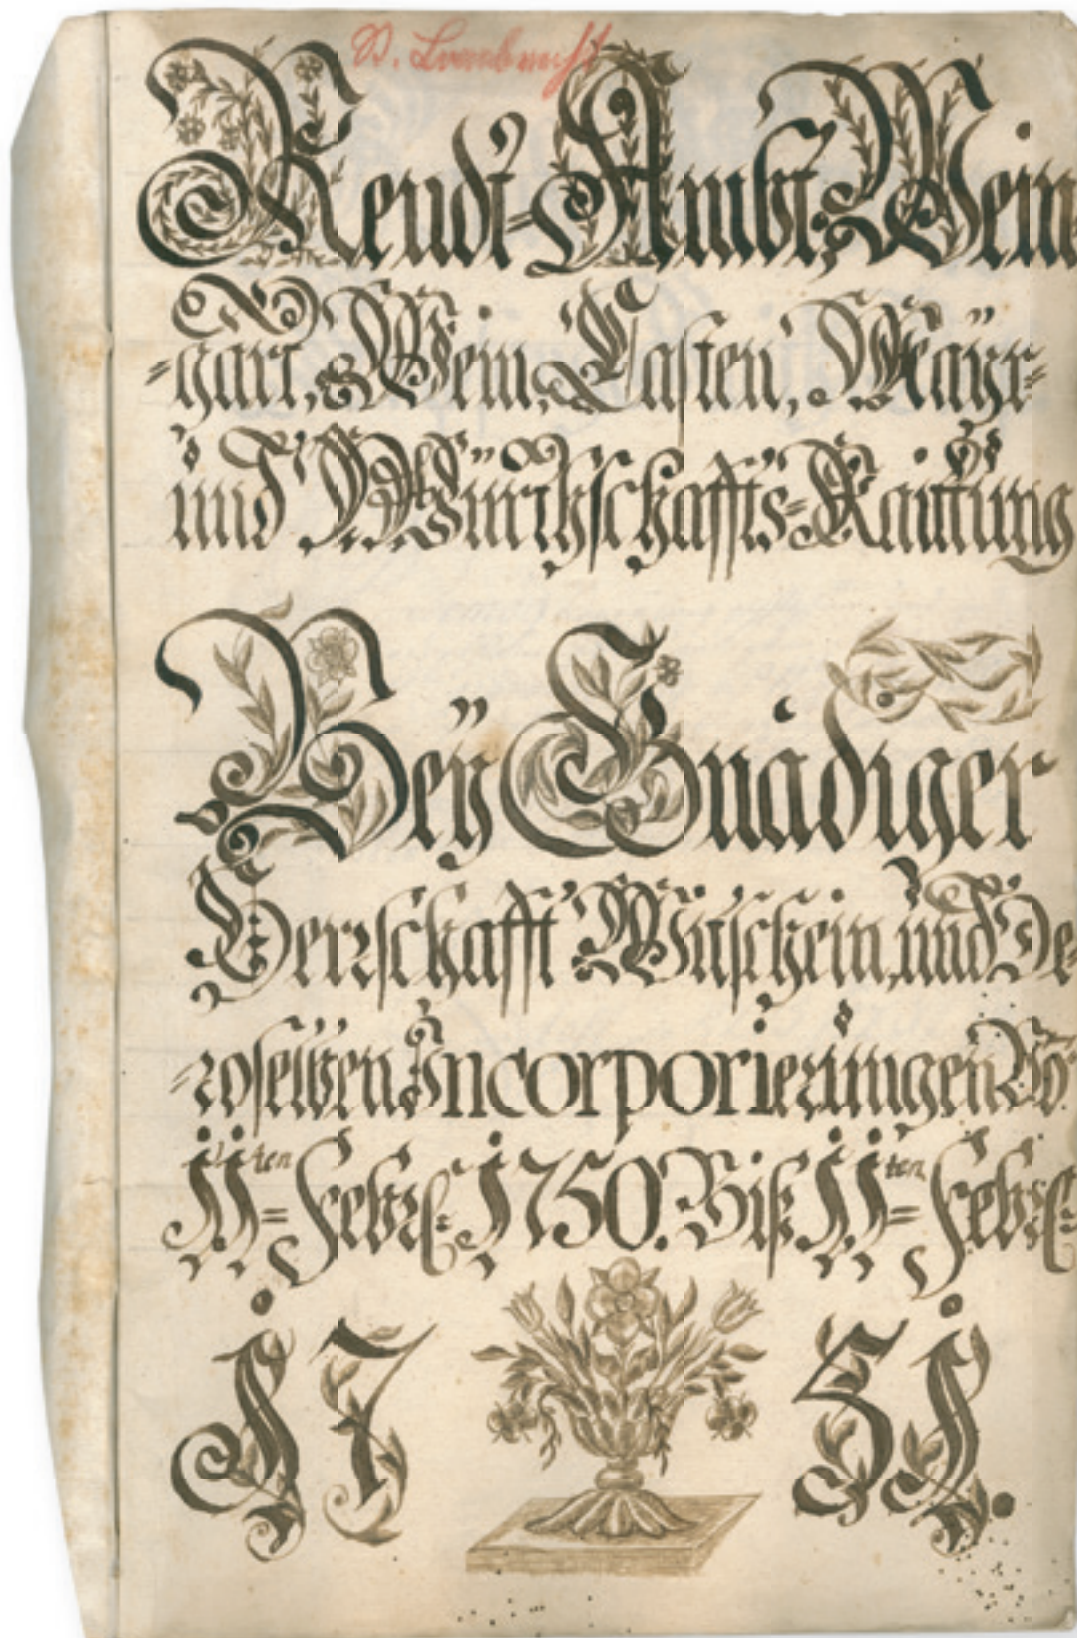 Rendt-Ambt-Wein
=gart, Wein, Casten, Mayr=
und Würthschaffts=Raittung
Beÿ Gnädiger
Herrschafft Wütschein, und De=
=roselben Incorporierungen Vo:
11=ten Febr: 1750. Biß 11=ten Febr:
17 51.